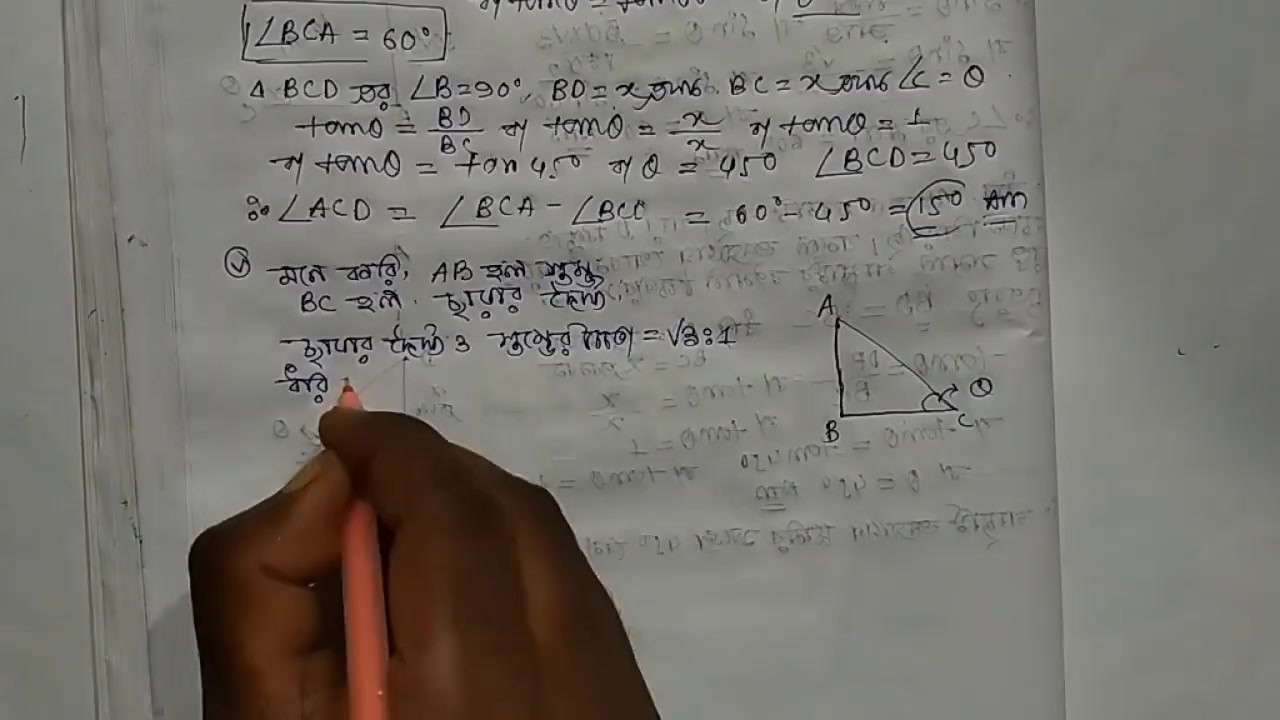 ∠BCA = 60°
Δ BCD এর ∠B = 90°, BD = x একক. BC = x একক ∠C = θ
tanθ = BD/BC বা tanθ = x/x বা tanθ = 1
বা tanθ = tan 45° বা θ = 45° ∠BCD = 45°
∴ ∠ACD = ∠BCA - ∠BCD = 60° - 45° = 15° Am
(v) মনে করি, AB হল স্তম্ভ
BC হল ছায়ার দৈর্ঘ্য.
ছায়ার দৈর্ঘ্য ও স্তম্ভের = √3:1
ধরি
A
θ
B
C